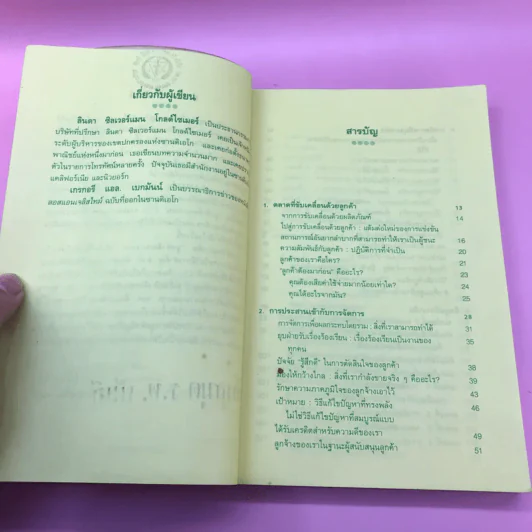 เกี่ยวกับผู้เขียน
ลินดา ซิลเวอร์แมน โกลด์ไซเมอร์ เป็นประธานกรรมการ
บริษัทที่ปรึกษา ลินดา ซิลเวอร์แมน โกลด์ไซเมอร์ เคยเป็นเจ้าหน้าที่
ระดับผู้บริหารของเขตปกครองแห่งซานดิเอโก และเคยก่อตั้ง
พาณิชย์แห่งหนึ่งมาก่อน เธอเขียนบทความจำนวนมาก และเคย
ตัวในรายการโทรทัศน์หลายครั้ง ปัจจุบันเธอมีสำนักงานอยู่ใน
แคลิฟอร์เนีย และนิวยอร์ก
เกรกอรี แอล. เบกมันน์ เป็นบรรณาธิการข่าวของ
ลอสแอนเจลิสไทม์ ฉบับที่ออกในซานดิเอโก
สารบัญ
1. ตลาดที่ขับเคลื่อนด้วยลูกค้า 13
จากการขับเคลื่อนด้วยผลิตภัณฑ์
ไปสู่การขับเคลื่อนด้วยลูกค้า : แต้มต่อใหม่ของการแข่งขัน 14
สถานการณ์อันยากลำบากที่สามารถทำให้เราเป็นผู้ชนะ 16
ความสัมพันธ์กับลูกค้า : ปฏิบัติการที่จำเป็น 20
ลูกค้าของเราคือใคร? 21
"ลูกค้าต้องมาก่อน" คืออะไร? 23
คุณต้องเสียค่าใช้จ่ายมากน้อยเท่าใด? 24
คุณได้อะไรจากมัน? 25
2. การประสานเข้ากับการจัดการ 28
การจัดการเพื่อผลกระทบโดยรวม : สิ่งที่เราสามารถทำได้ 31
ยุบฝ่ายรับเรื่องร้องเรียน : เรื่องร้องเรียนเป็นงานของ
ทุกคน 35
ปัจจัย "รู้สึกดี" ในการตัดสินใจของลูกค้า 38
มองให้กว้างไกล : สิ่งที่เรากำลังขายจริง ๆ คืออะไร? 39
รักษาความภาคภูมิใจของลูกค้าเอาไว้ 43
เป้าหมาย : วิธีแก้ไขปัญหาที่ทรงพลัง 46
ไม่ใช่วิธีแก้ไขปัญหาที่สมบูรณ์แบบ
ได้รับเครดิตสำหรับความดีของเรา 49
ลูกจ้างของเราในฐานะผู้สนับสนุนลูกค้า 51